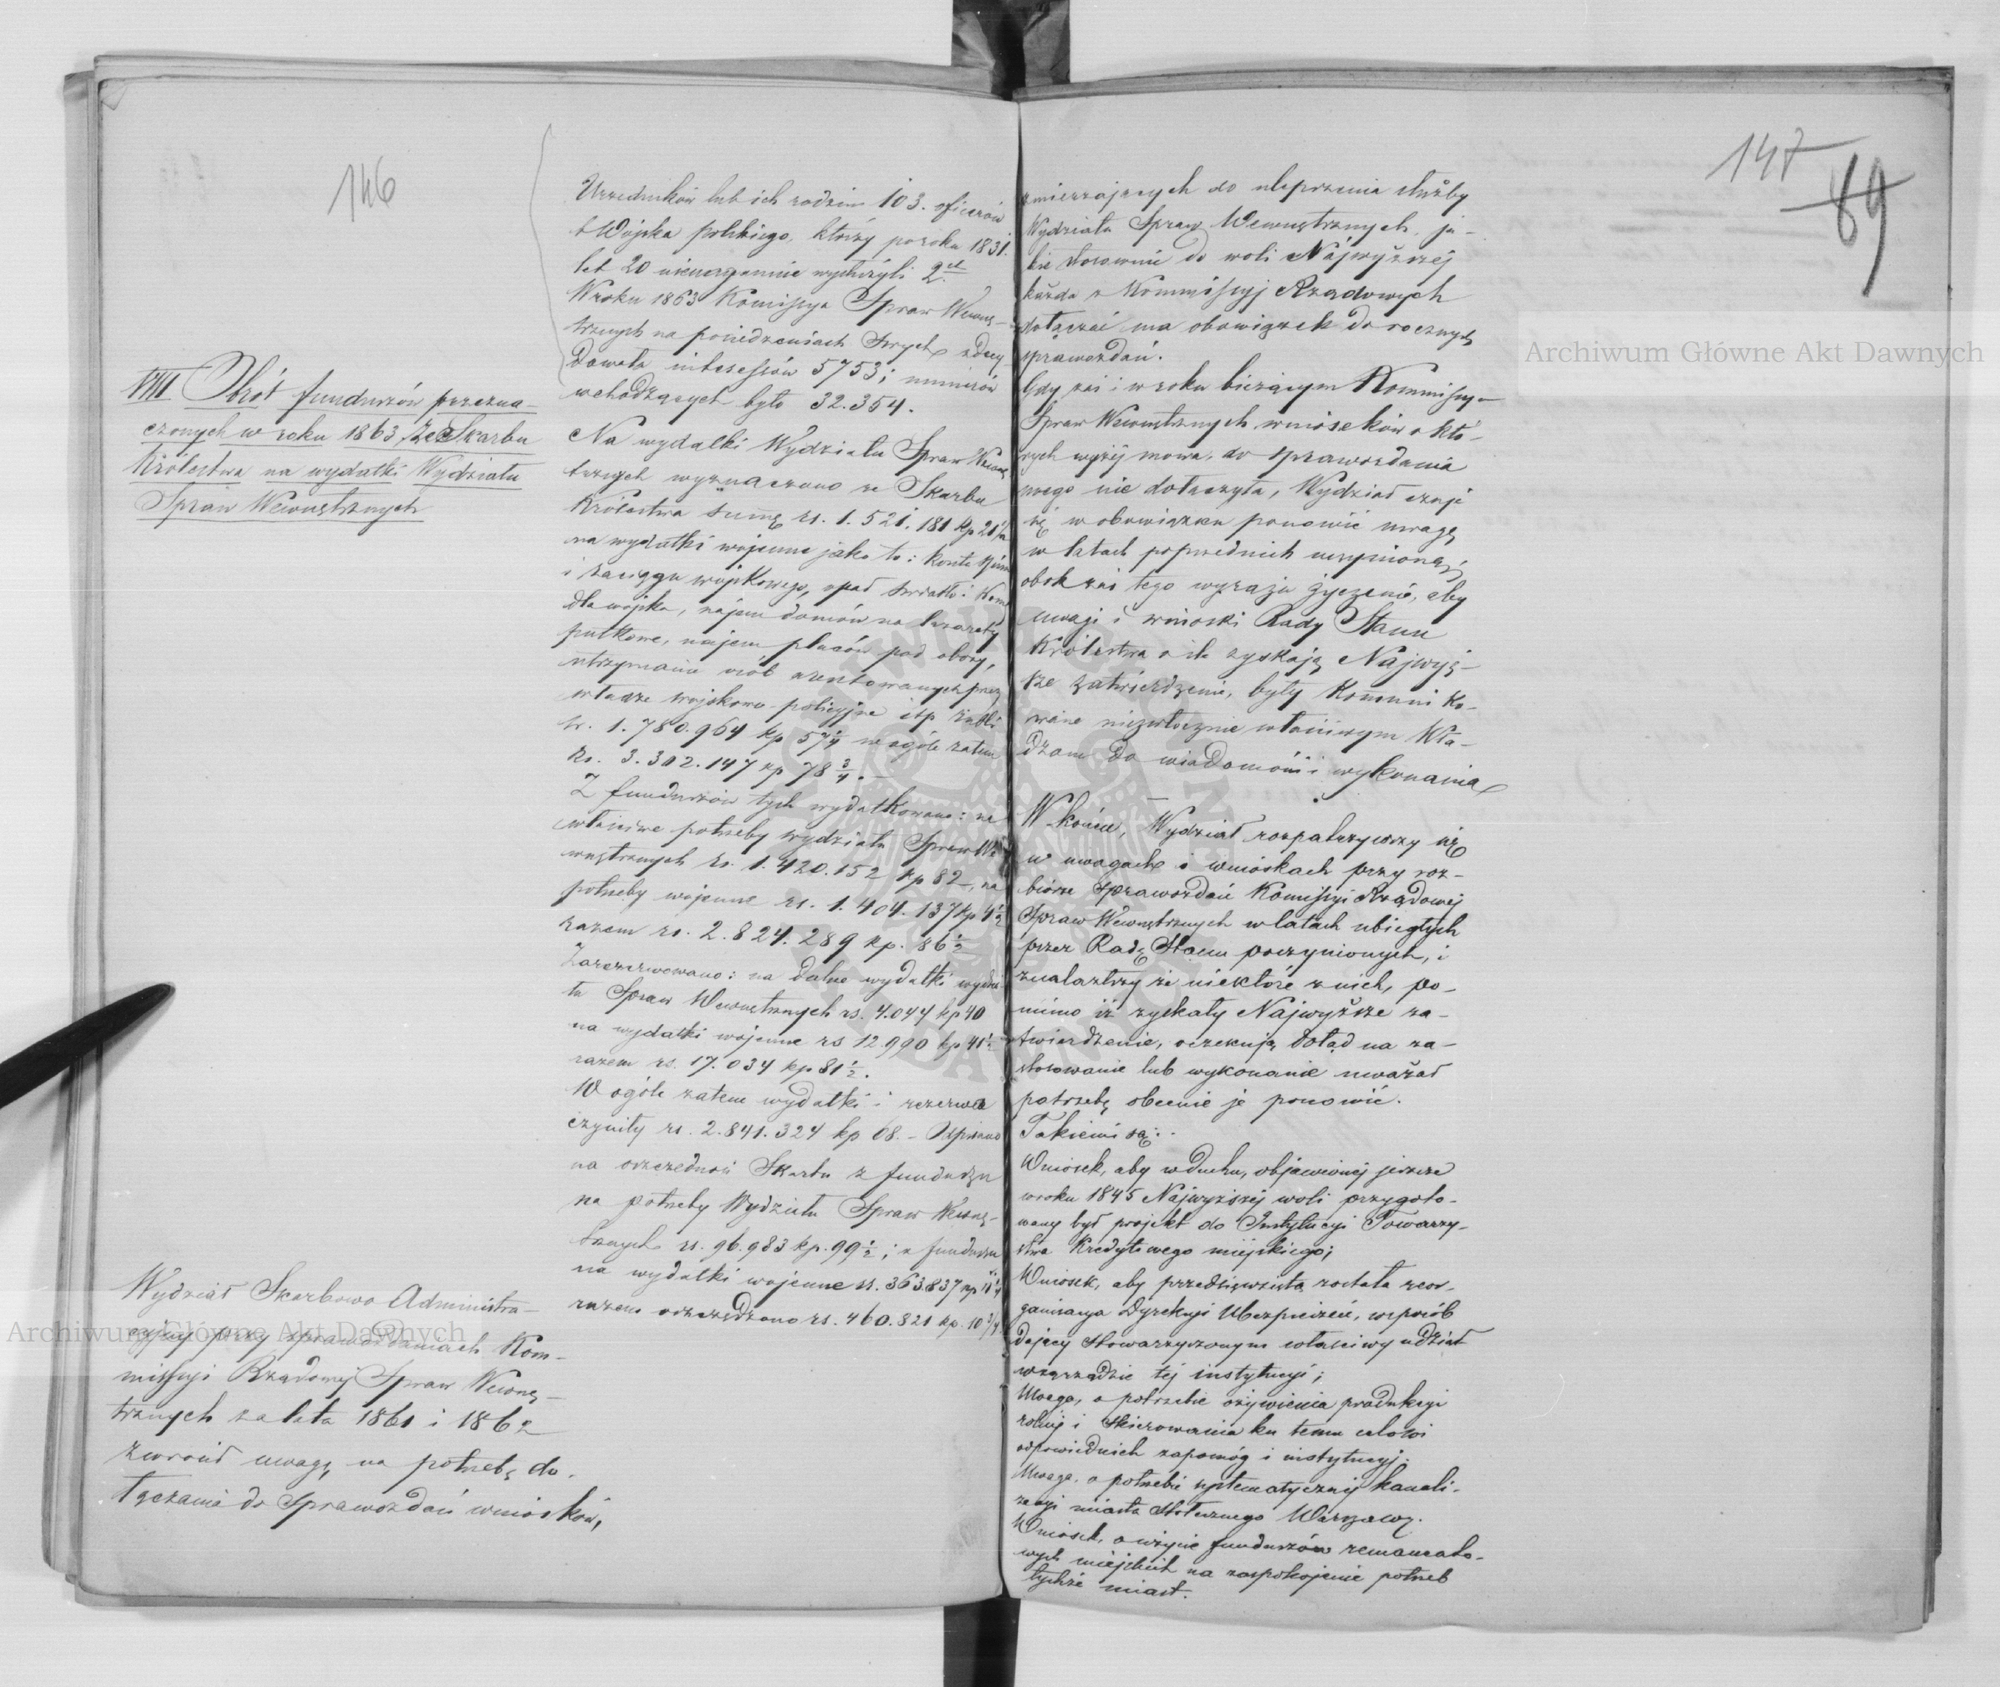 146
Urzedników lub ich rodzin 103. oficerów
b Wójska polskiego, którzy po roku 1831.
lat 20 nienagannie wysłużyli 2
W roku 1863 Komissya Spraw Wewnę-
trznych na posiedzeniach swych zdecy
dowała interessów 5753; numerów
wchodzących było 32.354.
VIII Obrót funduszów przezna-
czonych w roku 1863 ze Skarbu
Królestwa na wydatki Wydziału
Spraw Wewnętrznych
Na wydatki Wydziału Spraw Wewnę
trznych wyznaczono ze Skarbu
Królestwa summę rs. 1.521.181 kp 21½
na wydatki wojenne jako to: koszta
i zaciągu wojskowego, opał światło i
dla wojska, najem domów na lazarety
pułkowe, najem placów pod obozy,
utrzymanie osób aresztowanych przez
władze wojskowo-policyjne itp
1.780.964 kp 57¼ w ogóle zatem
Rs. 3.302.147 kp 78¾.-
Z funduszów tych wydatkowano: na
właściwe potrzeby wydziału Spraw We
wnętrznych rs. 1.420.152 kp 82, na
potrzeby wojenne rs. 1.404.137 kp 4½
razem rs. 2.824.289 kp. 86½
Zarezerwowano: na dalsze wydatki wydzia
łu Spraw Wewnetrznych rs. 4.044 kp 40
na wydatki wojenne rs 12.990 kp 41½
razem rs. 17.034 kp 81½.
W ogóle zatem wydatki i rezerwa
czyniły rs. 2.841.324 kp 08. - Odpisano
na oszczednosć Skarbu z funduszu
na potrzeby Wydziału Spraw Wewnę-
trznych rs. 96.983 kp. 99½; z funduszu
na wydatki wojenne rs. 363.837 kp 11¼
razem oszczędzono rs. 460.821 kp. 10¾
Wydział Skarbowo Administra-
cyjny przy sprawozdaniach Kom-
missyi Rządowej Spraw Wewnę-
trznych za lata 1861 i 1862
zwrócił uwagę na potrzebę do-
łączania do Sprawozdań wniosków,
147
89
zmierzających do ulepszenia służby
Wydziału Spraw Wewnętrznych, ja-
kie stosownie do woli Najwyższej
każda z Kommissyj Rządowych
dołączać ma obowiązek do rocznych
sprawozdań.
Gdy zaś i w roku bieżącym Kommissya
Spraw Wewnętrznych wniosków o któ-
rych wyżej mowa, do sprawozdania
swego nie dołączyła, Wydział czuje
się w obowiązku ponowić uwagę
w latach poprzednich uczynioną;
obok zaś tego wyraża życzenie, aby
uwagi i wnioski Rady Stanu
Królestwa o ile zyskają Najwyż-
sze zatwierdzenie, były kommuniko-
wane niezwłocznie właściwym Wła-
dzom do wiadomości i wykonania
W końcu, Wydział rozpatrzywszy się
w uwagach i wnioskach przy roz-
biorze Sprawozdań Komissyi Rządowej
Spraw Wewnętrznych w latach ubiegłych
przez Radę Stanu poczynionych, i
znalazłszy że niektóre z nich, po-
mimo iż zyskały Najwyższe za-
twierdzenie, oczekują dotąd na za-
stosowanie lub wykonanie uważał
potrzebę obecnie je ponowić.
Takiemi są:
Wniosek, aby w duchu, objawionej jeszcze
w roku 1845 Najwyższej woli przygoto-
wany był projekt do Instytucyi Towarzy-
stwa Kredytowego miejskiego;
Wniosek, aby przedsięwzięta została reor-
ganizacya Dyrekcyi Ubezpieczeń, w sposób
dający stowarzyszonym właściwy udział
w zarządzie tej instytucyi;
Uwaga, o potrzebie ożywienia produkcyi
rolnej i skierowania ku temu celowi
odpowiednich zapomóg i instytucyj.
Uwaga, o potrzebie systematycznej kanali-
zacyi miasta Stołecznego Warszawy.
Wniosek, o użycie funduszów remanento-
wych miejskich na zaspokojenie potrzeb
tychże miast.
Archiwum Główne Akt Dawnych
Archiwum Główne Akt Dawnych